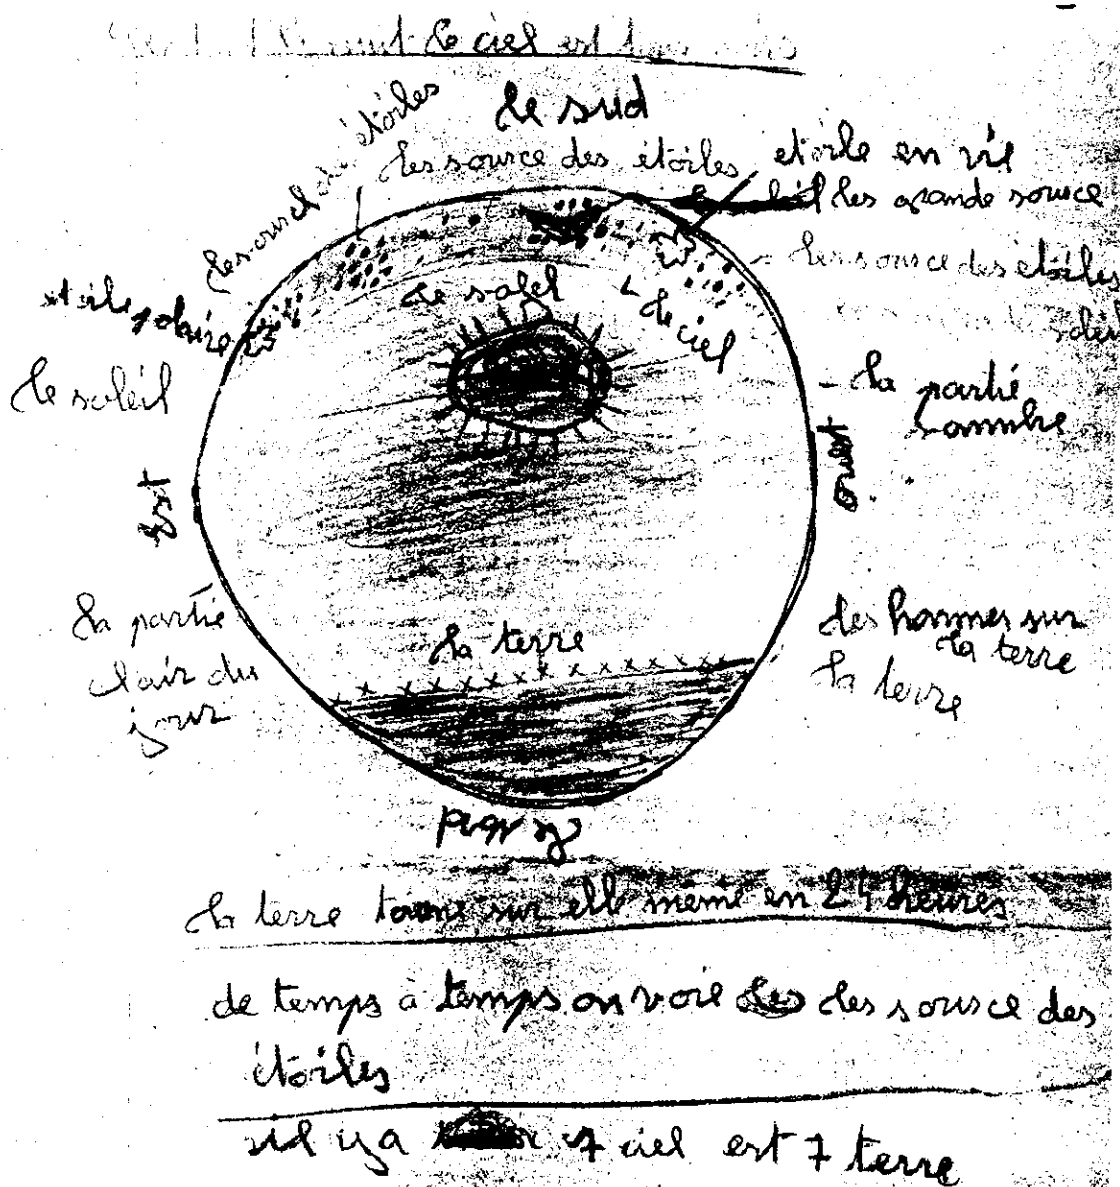 le ciel est
le sud
les source des étoiles
etoile en vie
les grande source
étoiles
les source des étoiles
etoile polaire
le soleil
le ciel
le soleil
la partié
sommbre
Est
ouest
la partie
clair du
jour
la terre
des hommes sur
la terre
la terre
la terre tourne sur elle même en 24 heures
de temps à temps on voie les source des
étoiles
sil ya 7 ciel est 7 terre